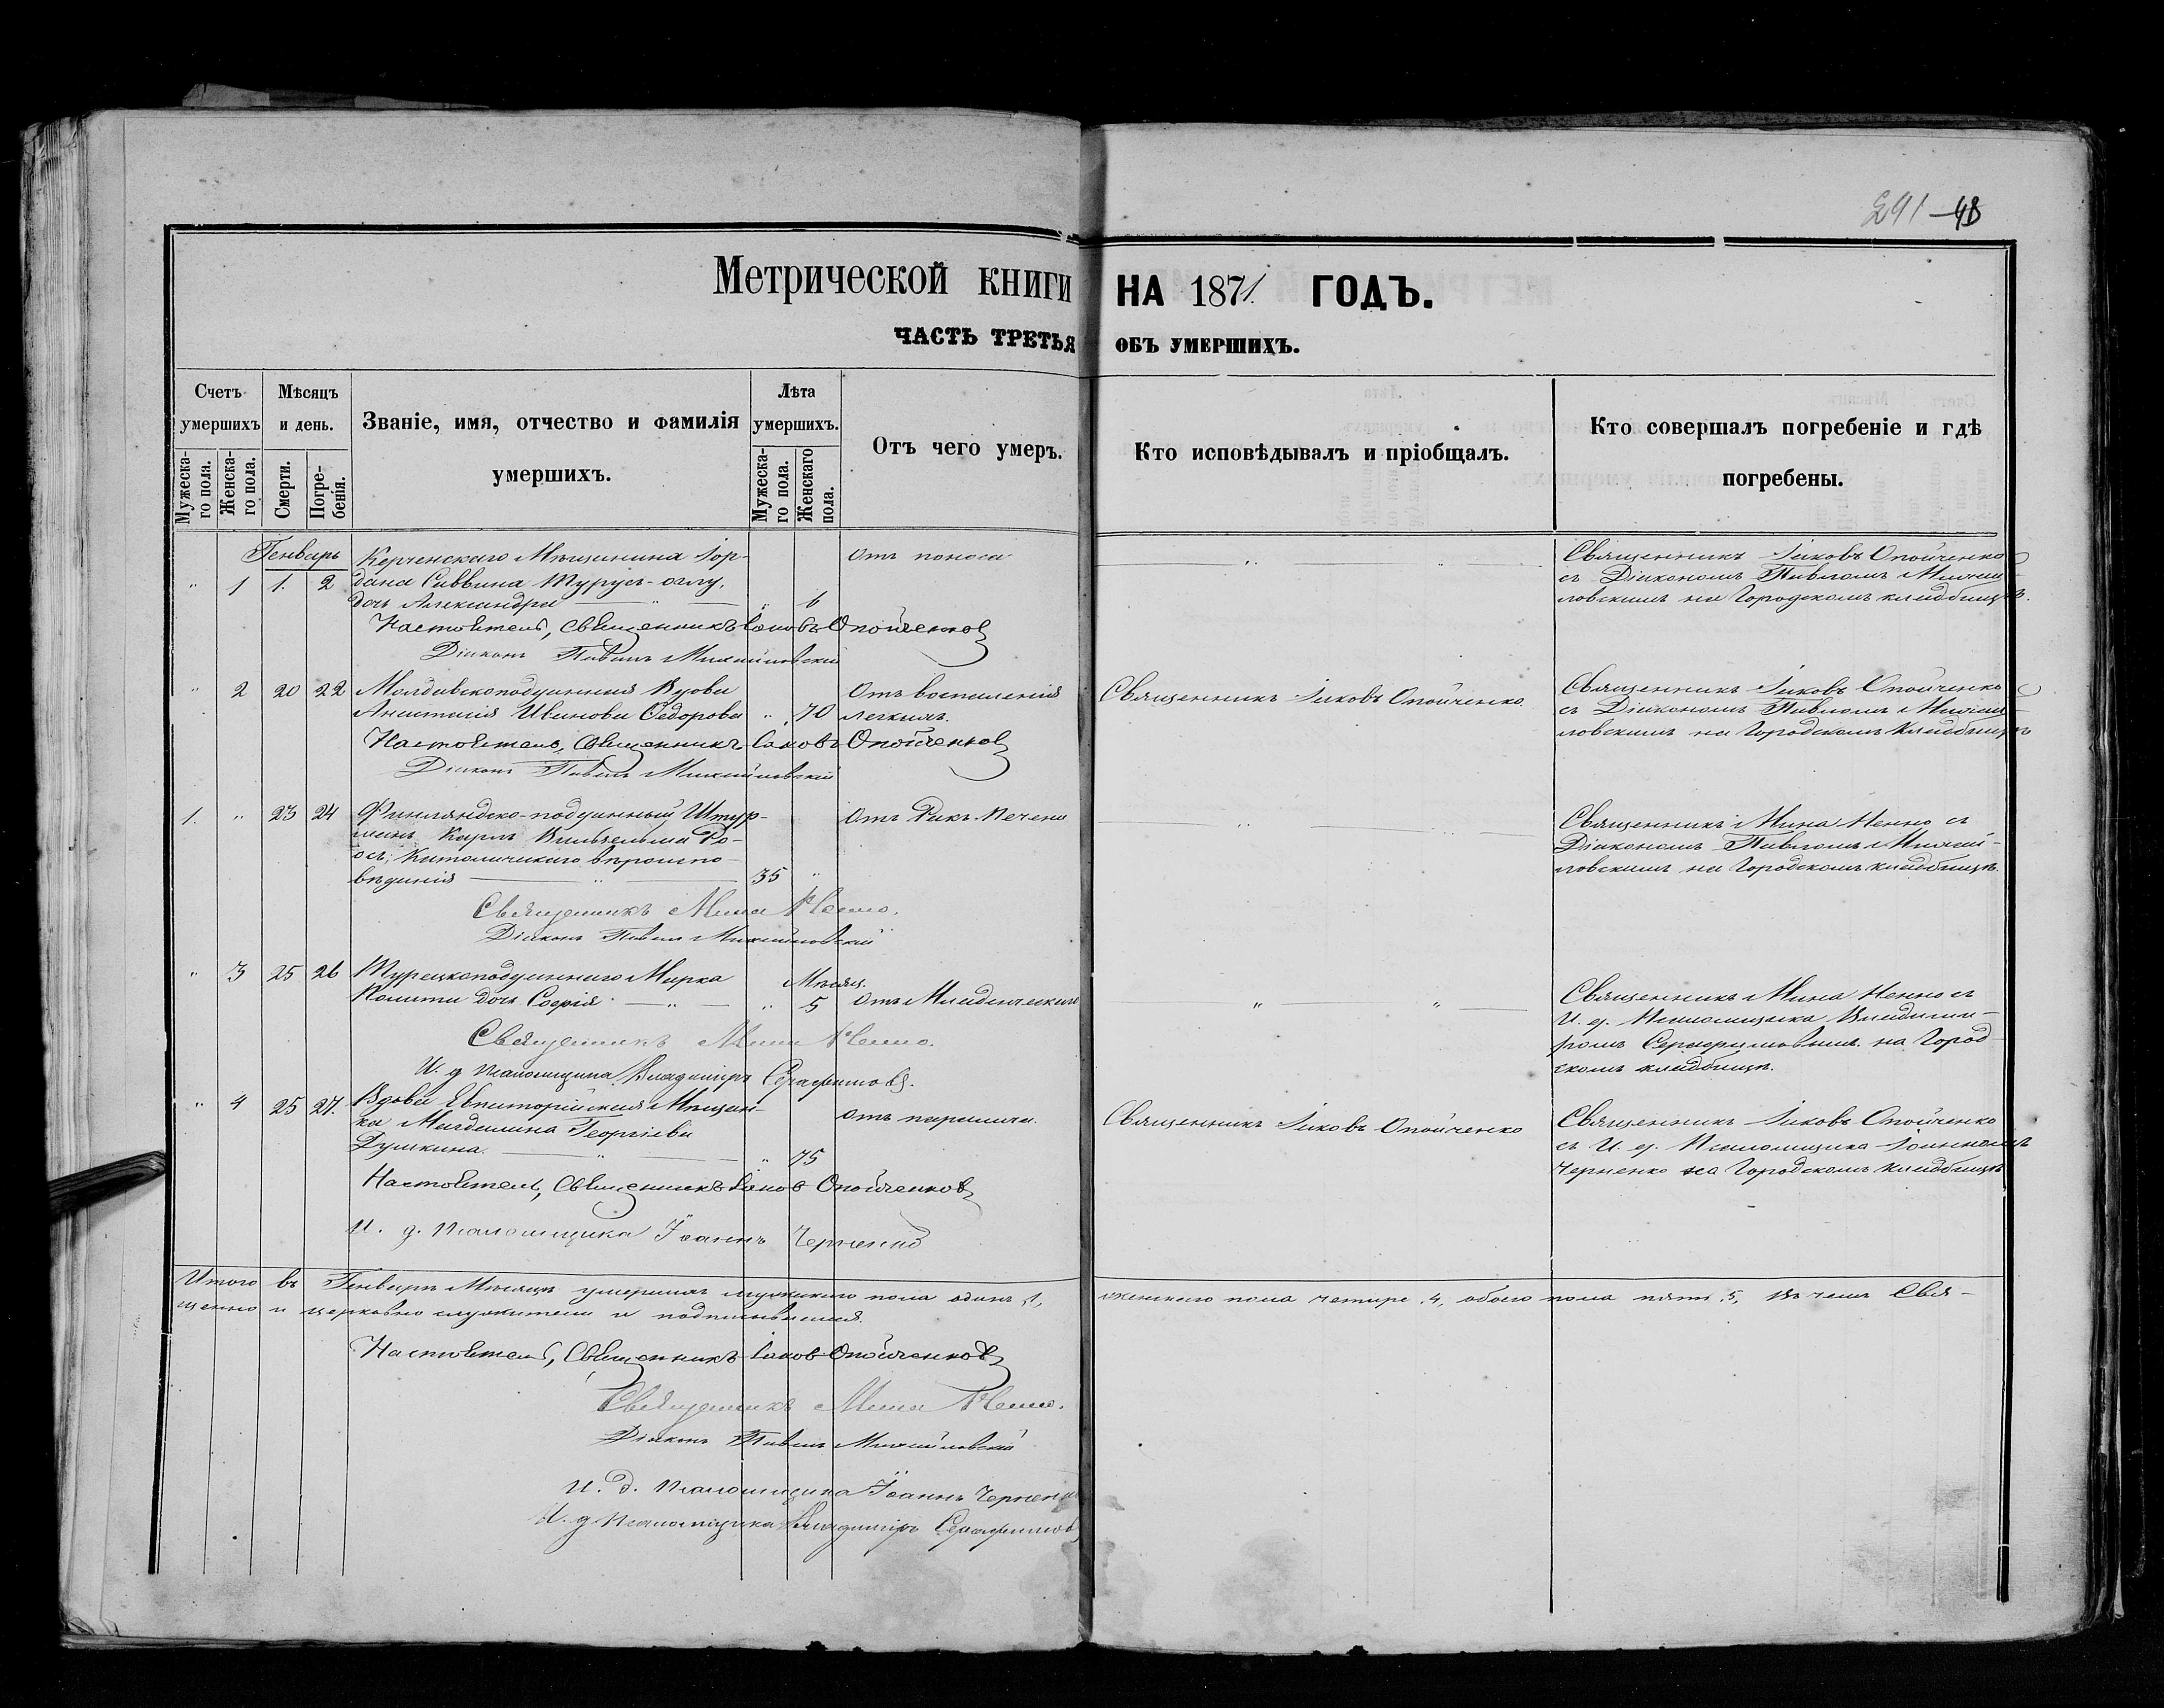 291 – 48
Метрической книги НА 1871. ГОДЪ.
ЧАСТЬ ТРЕТЬЯ ОБЪ УМЕРШИХЪ.
Счетъ умершихъ
Мужеска-го пола.
Женска-го пола.
Мѣсяцъ и день.
Смерти.
Погре-бенія.
Званіе, имя, отчество и фамилія умершихъ.
Лѣта умершихъ.
Мужеска-го пола.
Женскаго пола.
Отъ чего умеръ.
Кто исповѣдывалъ и пріобщалъ.
Кто совершалъ погребеніе и гдѣ погребены.
Генварь
" 1 1. 2
Керченскаго Мѣщанина Іор-
дана Саввина Турусъ-оглу,
дочь Александра — " — " 6
Отъ поноса
Священникъ Іаковъ Опойченко
съ Діакономъ Павломъ Михай-
ловскимъ на Городскомъ кладбищѣ.
Настоятель, Священникъ Іаковъ Опойченковъ
Діаконъ Павелъ Михайловскій
" 2 20 22
Молдавскоподданная Вдова
Анастасія Иванова Ѳедорова " 70
Отъ воспаленія
легкихъ.
Священникъ Іаковъ Опойченко.
Священникъ Іаковъ Опойченко
съ Діакономъ Павломъ Михай-
ловскимъ на Городскомъ Кладбищѣ
Настоятель, Священникъ Іаковъ Опойченковъ
Діаконъ Павелъ Михайловскій
1. " 23 24
Финляндско-подданный Штур-
манъ Карлъ Вильгельмъ Ро-
осъ, Католическаго вѣроиспо-
вѣданія — " — 35 "
Отъ Ракъ Печени
Священникъ Мина Ненно съ
Діакономъ Павломъ Михай-
ловскимъ на Городскомъ кладбищѣ.
Священникъ Мина Ненно.
Діаконъ Павелъ Михайловскій
" 3 25 26
Турецкоподданнаго Марка
дочь Софія — " — " 5
Мѣсяц.
Отъ Младенческой
Священникъ Мина Ненно съ
И. д. Псаломщика Владими-
ромъ Серафимовымъ. на Город-
скомъ кладбищѣ.
Священникъ Мина Ненно.
И. д. Псаломщика Владиміръ Серафимовъ.
" 4 25 27.
Вдова Евпаторійская Мѣщан-
ка Магдалина Георгіева
Думкина. — " — " 75
Отъ паралича.
Священникъ Іаковъ Опойченко
Священникъ Іаковъ Опойченко
съ И. д. Псаломщика Іоанномъ
Черненко на Городскомъ Кладбищѣ
Настоятель, Священникъ Іаковъ Опойченковъ
И. д. Псаломщика Іоаннъ Черненко
Итого въ Генварѣ Мѣсяцѣ умершихъ мужескаго пола одинъ 1, женскаго пола четыре .4, обоего пола пять .5, Въ чемъ Свя-
щенно и церковно служители и подписываемся.
Настоятель, Священникъ Іаковъ Опойченковъ
Священникъ Мина Ненно.
Діаконъ Павелъ Михайловскій
И. д. Псаломщика Іоаннъ Черненко
И. д. Псаломщика Владиміръ Серафимовъ